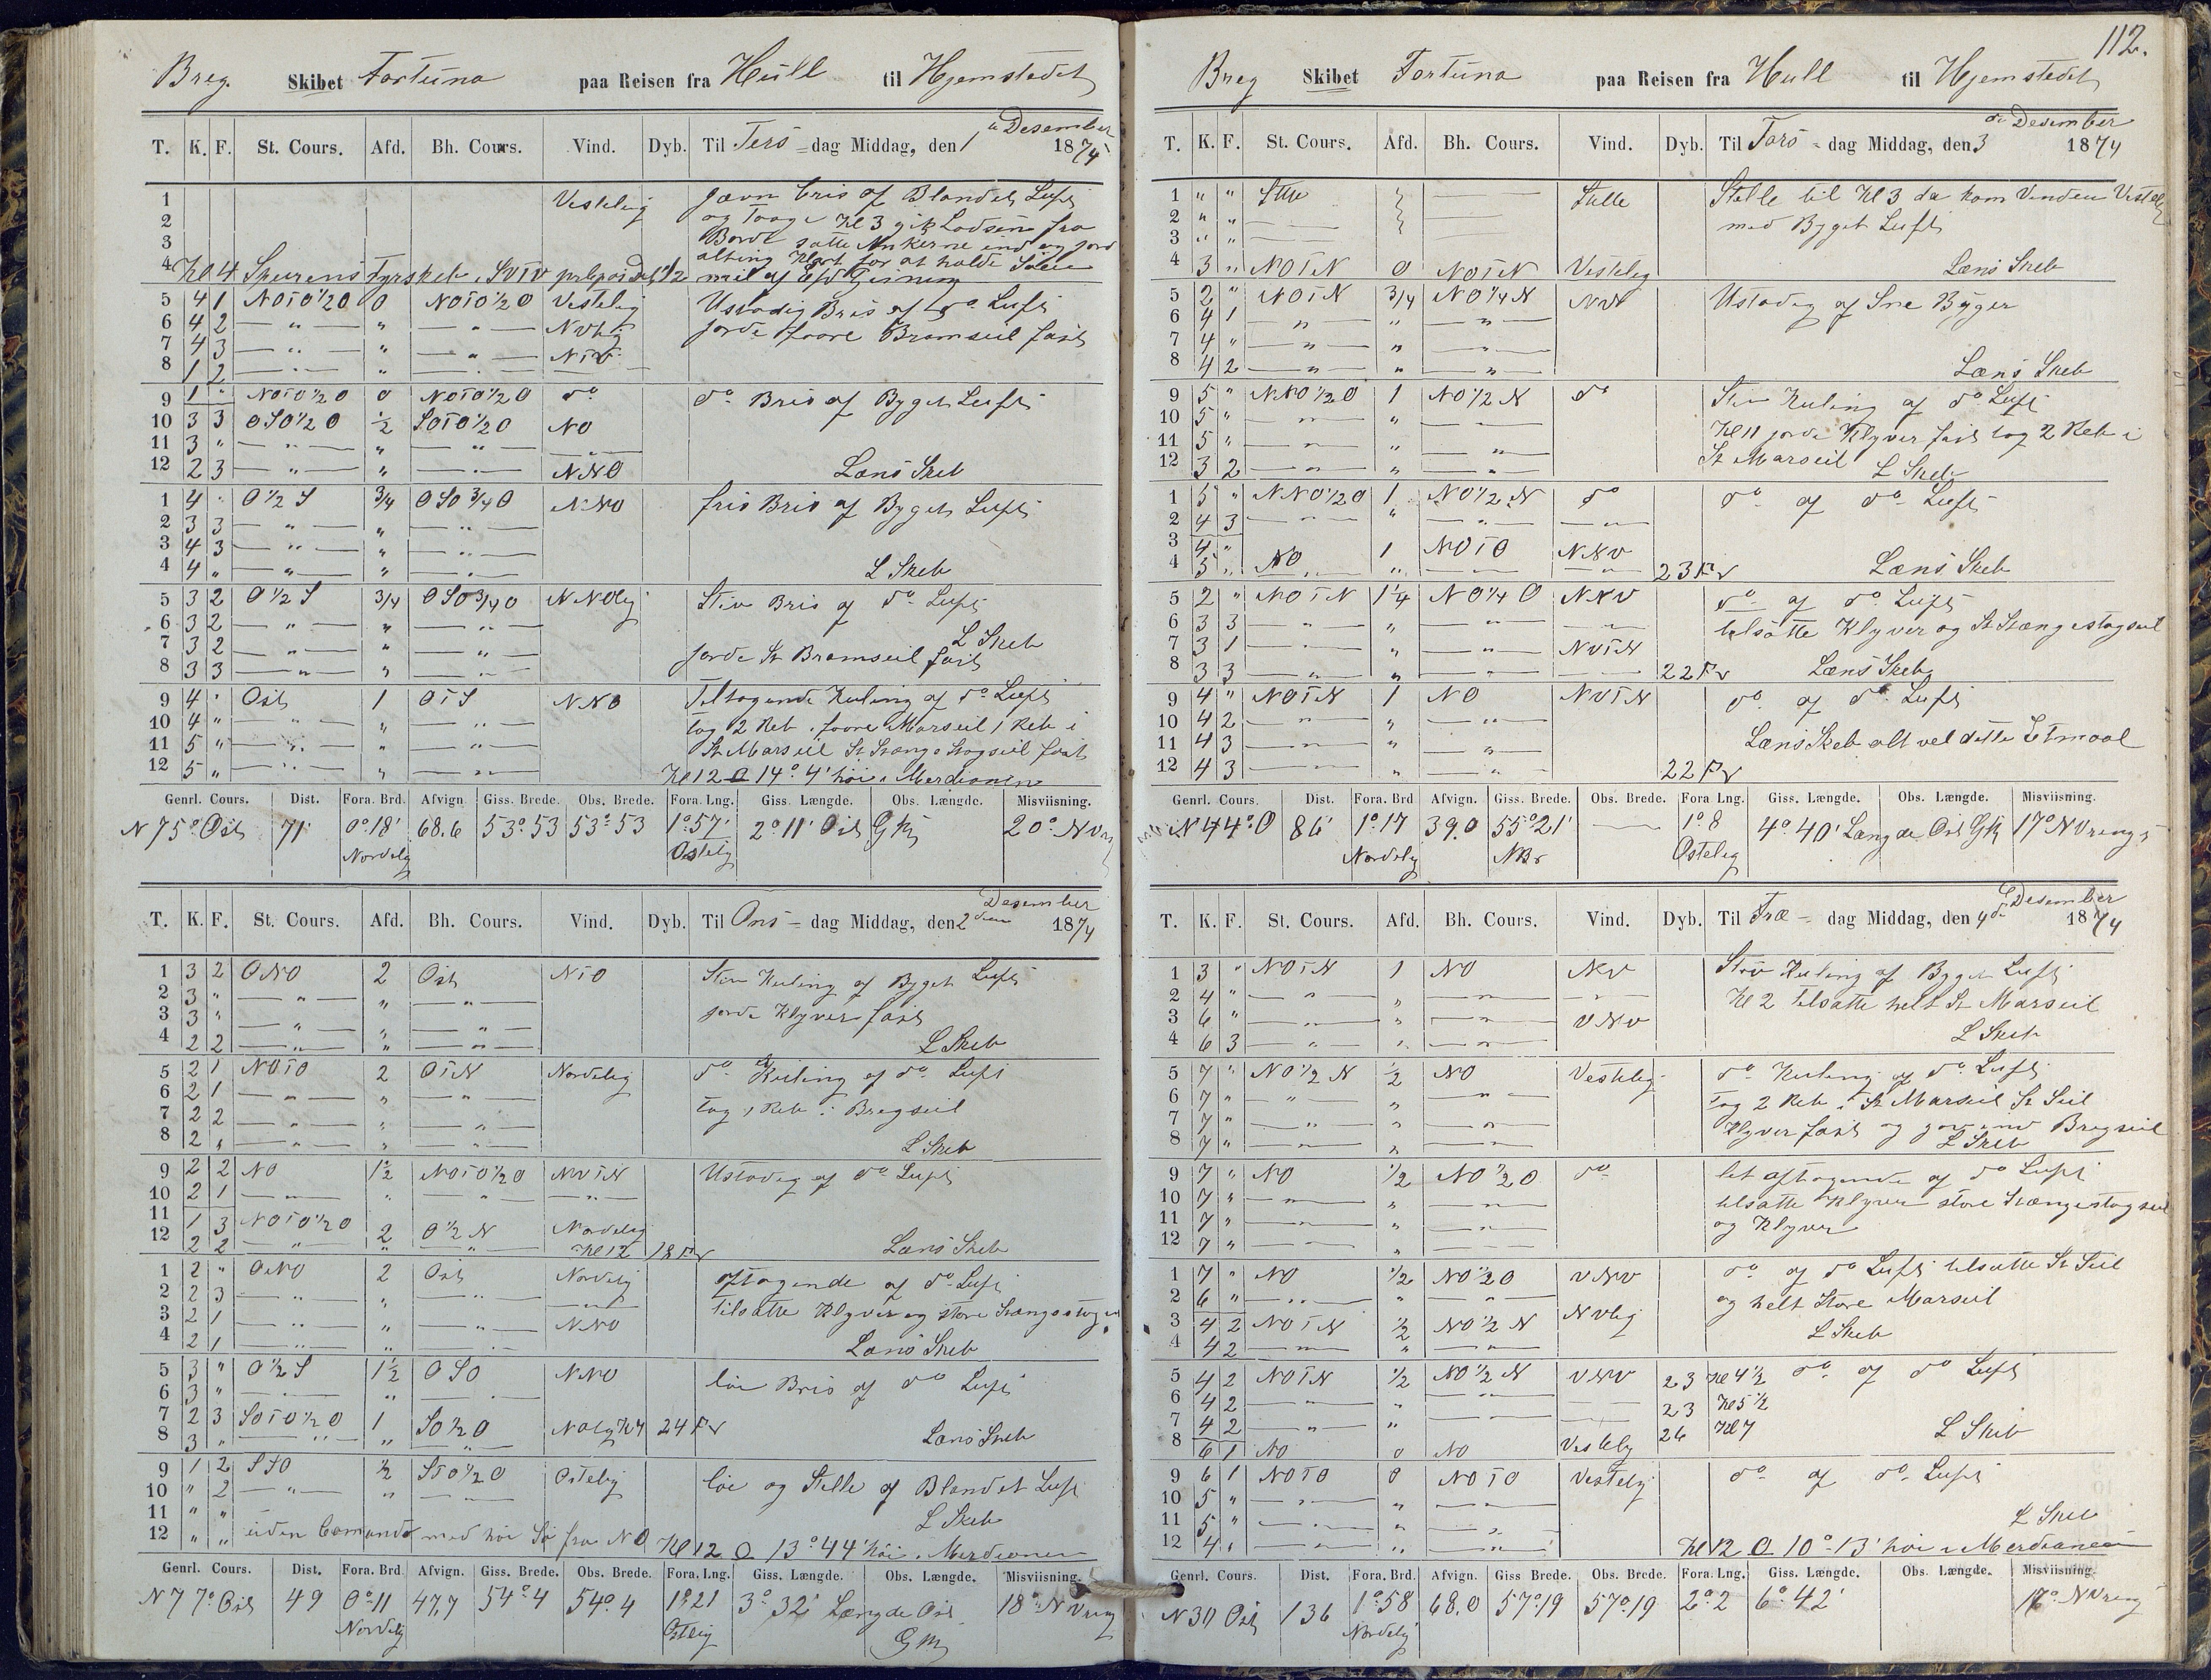 Breg. Skibet Fortuna paa Reisen fra Hull til Hjemstedet
T. K. F. St. Cours. Afd. Bh. Cours. Vind. Dyb. Til Ters-dag Middag, den 1 Desember 1874
1 Vestelig jævn bris af Blandet Luft
2 og Taage Kl 3 gik Lodsen fra
3 Borde satte Ankerne ind og
4 Kl 4 Spurens Fyrskeb i SVTV 1/2 mil af
5 4 1 NOTO 1/2 O 0 NOTO 1/2 O Vestelig Ustadig Bris af do Luft
6 4 2 — " — " — " — NVlig jorde foore Bramseil fast
7 4 3 — " — " — " — NTV
8 1 2 — " — " — " —
9 1 " NOTO 1/2 O 0 NOTO 1/2 O do do Bris af Byget Luft
10 3 3 OSO 1/2 O 1/2 SOTO 1/2 O NO
11 3 " — " — " — " —
12 2 3 — " — " — " — NNO Læns Skeb
1 4 " O 1/2 S 3/4 OSO 3/4 O NNO fris Bris af Byget Luft
2 3 3 — " — " — " —
3 4 3 — " — " — " —
4 4 " — " — " — " — L Skeb
5 3 2 O 1/2 S 3/4 OSO 3/4 O NNOlig Stiv Bris af do Luft
6 3 2 — " — " — " —
7 3 2 — " — " — " — L Skeb
8 3 3 — " — " — " — jorde St Bramseil fast
9 4 " Ost 1 OTS NNO Tiltagende Kuling af do Luft
10 4 " — " — " — " — tog 2 Reb i foore Marseil 1 Reb i
11 5 " — " — " — " — St Marseil St Stænge Stagseil fast
12 5 " — " — " — " — Kl 12 O 14° 4' höi i Merdionen
Genrl. Cours. Dist. Fora. Brd. Afvign Giss. Brede. Obs. Brede. Fora. Lng. Giss. Længde. Obs. Længde. Misviisning.
N 75° Ost 71' 0° 18' 68.6 53° 53 53° 53 1° 57' 2° 11' Ost 20° NV
Nordelig Ostelig
T. K. F. St. Cours. Afd. Bh. Cours. Vind. Dyb. Til Ons-dag Middag, den 2den Desember 1874
1 3 2 ONO 2 Ost NTO Stiv Kuling af Byget Luft
2 3 " — " — " — " —
3 3 " — " — " — " — jorde Klyver fast
4 2 2 — " — " — " — L Skeb
5 2 1 NOTO 2 OTN Nordelig do Kuling af do Luft
6 2 1 — " — " — " — tog 1 Reb i Bregseil
7 2 2 — " — " — " —
8 2 " — " — " — " — L Skeb
9 2 2 NO 1 1/2 NOTO 1/2 O NVTN Ustadig af do Luft
10 2 1 — " — " — " — — " —
11 1 3 NOTO 1/2 O 2 O 1/2 N Nordelig
12 2 2 — " — " — " — Kl 12 18 Fv Læns Skeb
1 2 " ONO 2 Ost Nordelig aftagende af do Luft
2 2 3 — " — " — " — — " — tilsatte Klyver og store Stængestag
3 2 1 — " — " — " — NNO
4 2 1 — " — " — " — Læns Skeb
5 3 " O 1/2 S 1 1/2 OSO NNO löi Bris af do Luft
6 3 " — " — " — " —
7 2 3 SOTO 1/2 O 1 SO 1/2 O NOlig Kl 4 24 Fv
8 3 " — " — " — " — Læns Skeb
9 1 2 SSO 1/2 STO 1/2 O Ostelig löi og Stille af Blandet Luft
10 " 2 — " — " — " —
11 " " L Skeb
12 " " uden Comando med höi Sö fra NO Kl 12 O 13° 44' höi i Merdionen
Genrl. Cours. Dist. Fora. Brd. Afvign. Giss. Brede. Obs. Brede. Fora. Lng. Giss. Længde. Obs. Længde. Misviisning.
N 77° Ost 49 0° 11 47,7 54° 4 54° 4 1° 21 3° 32' Længde Ost 18° NVring
Nordelig Ostlig GM
112.
Breg Skibet Fortuna paa Reisen fra Hull til Hjemstedet
T. K. F. St. Cours. Afd. Bh. Cours. Vind. Dyb. Til Tors-dag Middag, den 3 de Desember 1874
1 " " Stille — Stille Stille til Kl 3 da kom Vinden Vestelig
2 " " — — med Byget Luft
3 " " — —
4 3 " NOTN 0 NOTN Vestelig Læns Skeb
5 2 " NOTN 3/4 NO 1/4 N NV Ustadig af Sne Byger
6 4 1 — " — " — " —
7 4 " — " — " — " —
8 4 2 — " — " — " — Læns Skeb
9 5 " NNO 1/2 O 1 NO 1/2 N do Stiv Kuling af do Luft
10 5 " — " — " — " — Kl 11 jorde Klyver fast tog 2 Reb i
11 5 " — " — " — " — St Marseil
12 3 2 — " — " — " — L Skeb
1 5 " NNO 1/2 O 1 NO 1/2 N do do af do Luft
2 4 3 — " — " — " — — " —
3 4 " NO 1 NOTO NNV
4 5 " — " — " — " — — " — 23 Fv Læns Skeb
5 2 " NOTN 1 1/4 NO 1/4 O NNV do af do Luft
6 3 3 — " — " — " — — " — tilsatte Klyver og St Stængestagseil
7 3 1 — " — " — " — NVTN
8 3 3 — " — " — " — — " — 22 Fv Læns Skeb
9 4 " NOTN 1 NO NVTN do af do Luft
10 4 2 — " — " — " —
11 4 3 — " — " — " — Læns Skeb alt vel dette Etmaal
12 4 3 — " — " — " — 22 Fv
Genrl. Cours. Dist. Fora. Brd Afvign. Giss. Brede. Obs. Brede. Fora Lng. Giss. Længde. Obs. Længde. Misviisning.
N 44° O 86' 1° 17 39.0 55° 21' — 1° 8 4° 40' Længde Ost 17° NVring
Nordelig NBr Ostelig
T. K. F. St. Cours. Afd. Bh. Cours. Vind. Dyb. Til Fre-dag Middag, den 4 de Desember 1874
1 3 " NOTN 1 NO NV Stiv Kuling af Byget Luft
2 4 " — " — " — " — — " — Kl 2 tilsatte helt St Marseil
3 6 " — " — " — " — VNV
4 6 3 — " — " — " — L Skeb
5 7 " NO 1/2 N 1/2 NO Vestelig do Kuling af do Luft
6 7 " — " — " — " — tog 2 Reb i St Marseil St Seil
7 7 " — " — " — " — Klyver fast og Bregseil
8 7 " — " — " — " — L Skeb
9 7 " NO 1/2 NO 1/2 O do let aftagende af do Luft
10 7 " — " — " — " — tilsatte Klyver store Stængestagseil
11 7 " — " — " — " — og Klyver
12 7 " — " — " — " —
1 7 " NO 1/2 NO 1/2 O VNV do af do Luft tilsatte St Seil
2 6 " — " — " — " — og helt Store Marseil
3 4 2 NOTN 1/2 NO 1/2 N NVlig
4 4 2 — " — " — " — L Skeb
5 4 2 NOTN 1/2 NO 1/2 N VNV 23 Kl 4 1/2 do af do Luft
6 4 2 — " — " — " — — 23 Kl 5 1/2
7 4 2 — " — " — " — — 26 Kl 7
8 6 1 NO 0 NO Vestelig L Skeb
9 6 1 NOTO 0 NOTO Vestelig do af do Luft
10 5 " — " — " — " —
11 5 " — " — " — " — L Skeb
12 4 " — " — " — " — Kl 12 O 10° 13' höi i Merdianen
Genrl. Cours. Dist. Fora. Brd. Afvign. Giss Brede. Obs. Brede. Fora. Lng. Giss. Længde. Obs. Længde. Misviisning.
N 30 Ost 136 1° 58 68.0 57° 19 57° 19 2° 2 6° 42' NVring
Nordelig